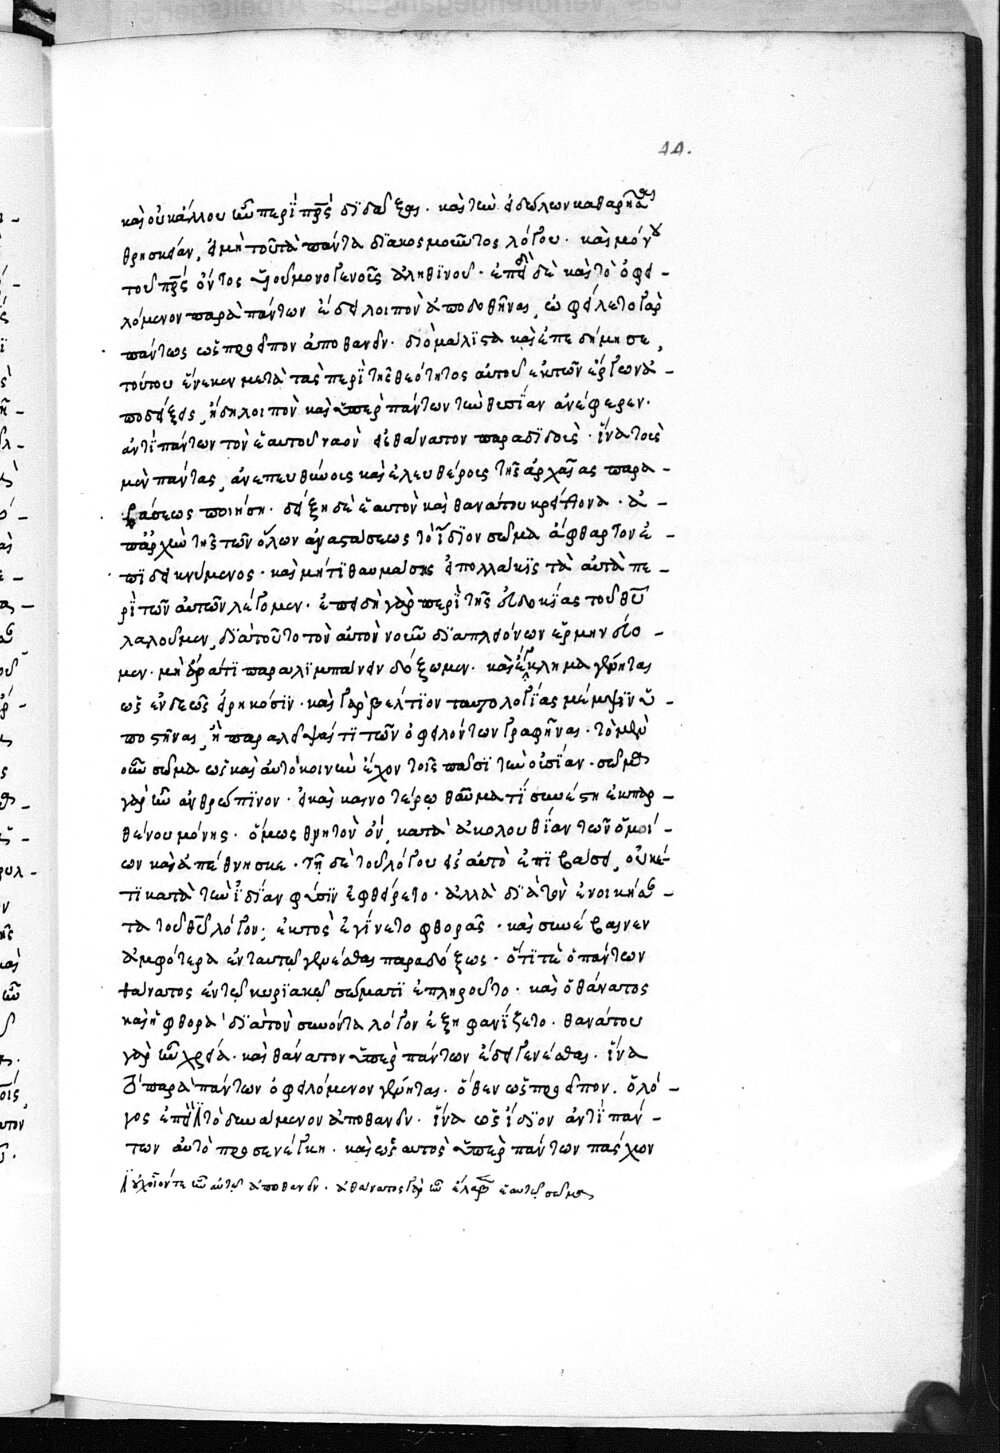 καὶ οὐκ ἄλλου ἦν περὶ πρς διδάξαι· καὶ τὴν εἰδώλων καθαρῆσαι
θρησκείαν, εἰ μὴ τοῦ τὰ πάντα διακοσμοῦντος λόγου· καὶ μόνου
τοῦ πρς ὄντος ὑοῦ μονογενοῦς ἀληθινοῦ· ἐπειδὴ δὲ καὶ τὸ ὀφει-
λόμενον παρὰ πάντων ἔδει λοιπὸν ἀποδοθῆναι, ὠφείλετο γὰρ
πάντως ὡς προεῖπον ἀποθανεῖν· διὸ μάλιστα καὶ ἐπεδήμησε,
τούτου ἕνεκεν μετὰ τὰς περὶ τῆς θεότητος αὐτοῦ ἐκ τῶν ἔργων ἀ-
ποδείξεις, ἤδη λοιπὸν καὶ ὑπὲρ πάντων τὴν θυσίαν ἀνέφερεν·
ἀντὶ πάντων τὸν ἑαυτοῦ ναὸν εἰς θάνατον παραδιδοὺς· ἵνα τοὺς
μὲν πάντας, ἀνυπευθύνους καὶ ἐλευθέρους τῆς ἀρχαίας παρα-
βάσεως ποιήσῃ· δείξῃ δὲ ἑαυτὸν καὶ θανάτου κρείττονα· ἀ-
παρχὴν τῆς τῶν ὅλων ἀναστάσεως τὸ ἴδιον σῶμα ἄφθαρτον ἐ-
πιδεικνύμενος· καὶ μή τι θαυμάσῃς εἰ πολλάκις τὰ αὐτὰ πε-
ρὶ τῶν αὐτῶν λέγομεν· ἐπειδὴ γὰρ περὶ τῆς εὐδοκίας τοῦ θυ
λαλοῦμεν, διὰ τοῦτο τὸν αὐτὸν νοῦν διὰ πλειόνων ἑρμηνεύο-
μεν· μὴ ἄρα τι παραλιμπάνειν δόξωμεν· καὶ ἔγκλημα γένηται
ὡς ἐνδεῶς εἰρηκόσιν· καὶ γὰρ βέλτιον ταυτολογίας μέμψιν ὑ-
ποστῆναι, ἢ παραλεῖψαί τι τῶν ὀφειλόντων γραφῆναι· τὸ μὲν
οὖν σῶμα ὡς καὶ αὐτὸ κοινὴν ἔχον τοῖς πᾶσι τὴν οὐσίαν· σῶμα
γὰρ ἦν ἀνθρώπινον· εἰ καὶ καινοτέρῳ θαύματι συνέστη ἐκ παρ-
θένου μόνης· ὅμως θνητὸν ὂν, κατὰ ἀκολουθίαν τῶν ὁμοί-
ων καὶ ἀπέθνησκε· τῇ δὲ τοῦ λόγου εἰς αὐτὸ ἐπιβάσει, οὐκέ-
τι κατὰ τὴν ἰδίαν φύσιν ἐφθείρετο· ἀλλὰ διὰ τὸν ἐνοικήσαν-
τα τοῦ θυ λόγον, ἐκτὸς ἐγίνετο φθορᾶς· καὶ συνέβαινεν
ἀμφότερα ἐν ταυτῷ γενέσθαι παραδόξως· ὅτι τε ὁ πάντων
θάνατος ἐν τῷ κυριακῷ σώματι ἐπληροῦτο· καὶ ὁ θάνατος
καὶ ἡ φθορὰ διὰ τὸν συνόντα λόγον ἐξηφανίζετο· θανάτου
γὰρ ἦν χρεία· καὶ θάνατον ὑπὲρ πάντων ἔδει γενέσθαι· ἵνα
τὸ παρὰ πάντων ὀφειλόμενον γένηται· ὅθεν ὡς προεῖπον, ὁ λό-
γος ἐπεὶ τὸ δυνάμενον ἀποθανεῖν· ἵνα ὡς ἴδιον ἀντὶ πάν-
των αὐτὸ προσενέγκῃ· καὶ ὡς αὐτὸς ὑπὲρ πάντων πάσχων
οὐχ οἷόν τε ἦν αὐτῷ ἀποθανεῖν· ἀθάνατος γὰρ ἦν ἔλαβεν ἑαυτῷ σῶμα